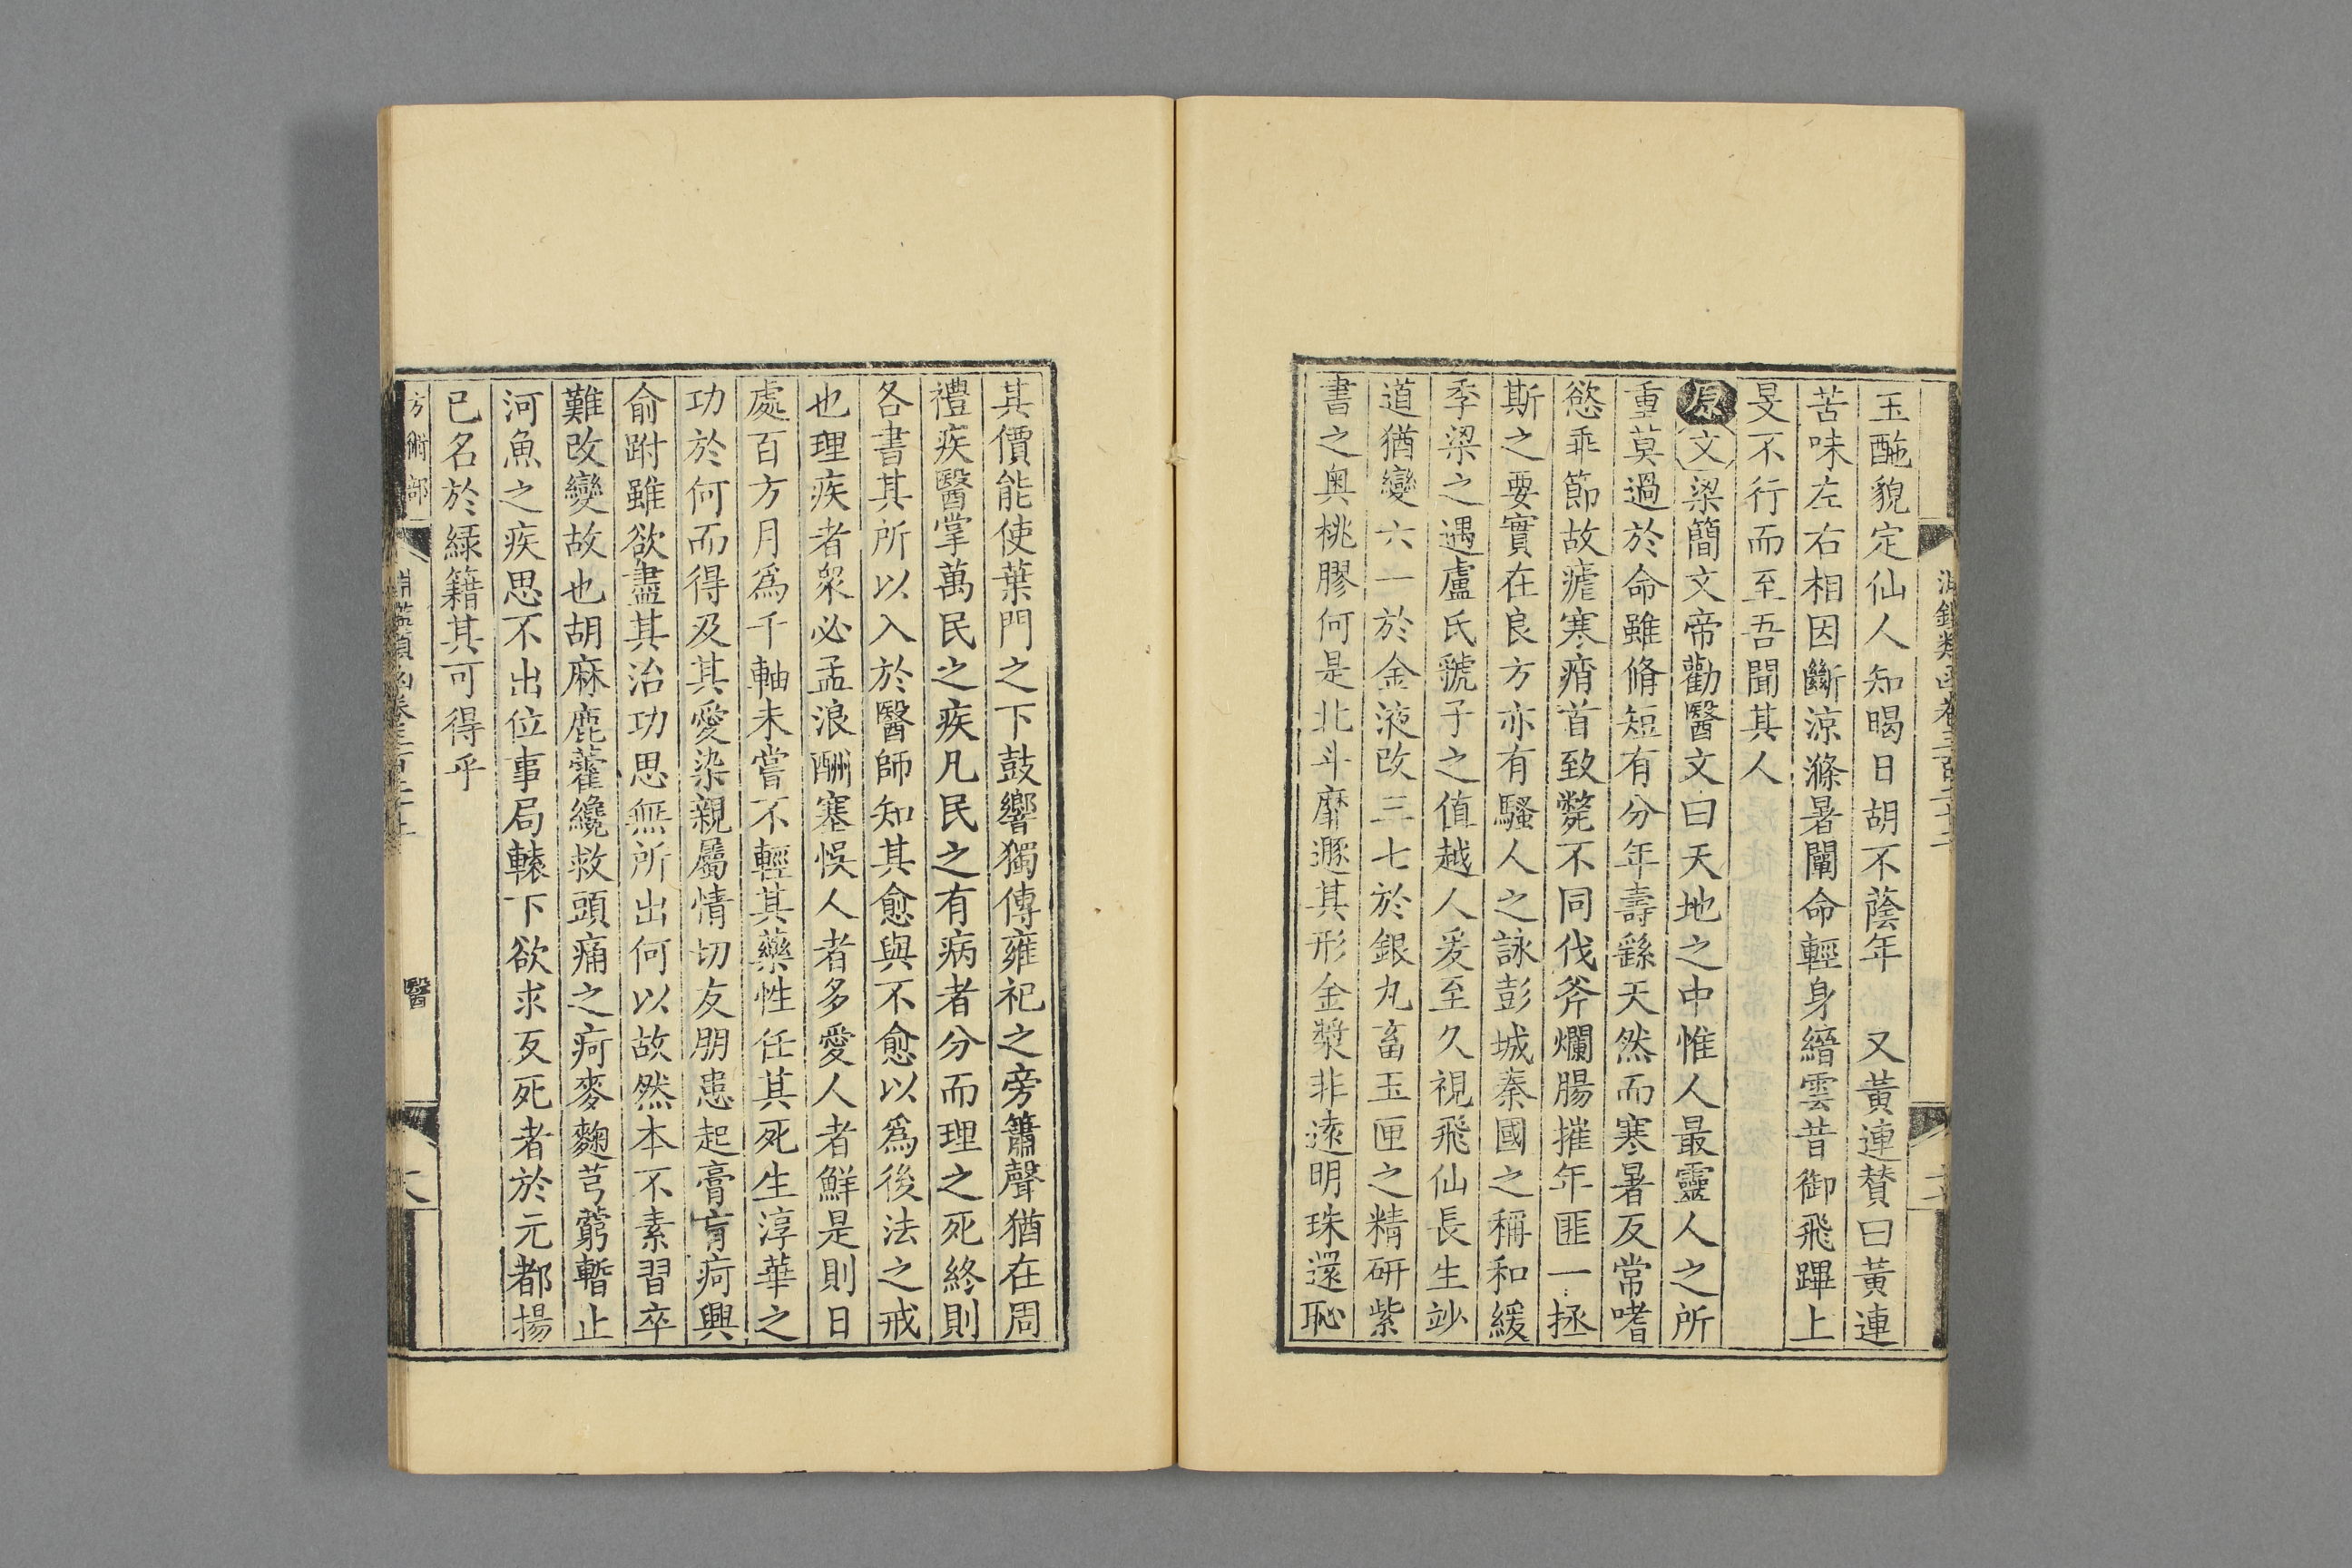 玉酏貌定仙人知暍日胡不䕃年　又黃連贊曰黃連
苦味左右相因斷涼滌暑闡命輕身縉雲昔御飛蹕上
旻不行而至吾聞其人
原文梁簡文帝勸醫文曰天地之中惟人最靈人之所
重莫過於命雖脩短有分年壽繇天然而寒暑反常嗜
慾乖節故瘧寒痟首致斃不同伐斧爛腸摧年匪一拯
斯之要實在良方亦有騷人之詠彭城秦國之稱和緩
季梁之遇盧氏虢子之值越人爰至久視飛仙長生妙
道猶變六一於金液改三七於銀丸畜玉匣之精研紫
書之奧桃膠何是北斗靡遯其形金漿非遠明珠還恥
其價能使葉門之下鼓響獨傳雍祀之旁簫聲猶在周
禮疾醫掌萬民之疾凡民之有病者分而理之死終則
各書其所以入於醫師知其愈與不愈以爲後法之戒
也理疾者衆必孟浪酬塞悮人者多愛人者鮮是則日
處百方月爲千軸未嘗不輕其藥性任其死生淳華之
功於何而得及其愛染親屬情切友朋患起膏肓痾興
俞跗雖欲盡其治功思無所出何以故然本不素習卒
難改變故也胡麻鹿藿纔救頭痛之痾麥麴芎藭暫止
河魚之疾思不出位事局轅下欲求反死者於元都揚
已名於綠籍其可得乎
方術部
醫